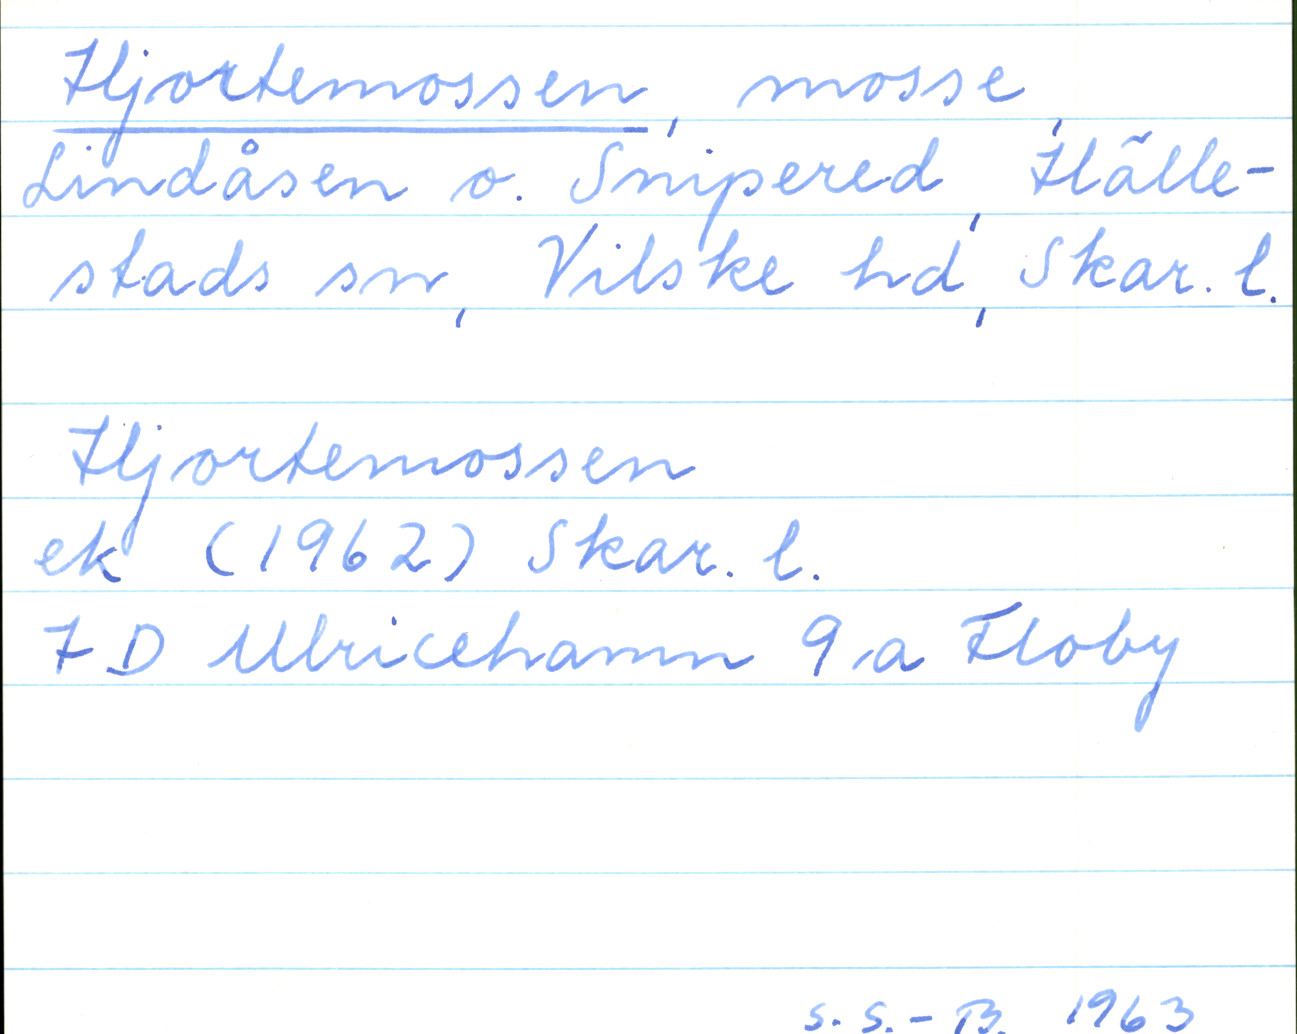 Hjortemossen, mosse,
Lindåsen o. Snipered, Hälle-
stads sn, Vilske hd, Skar. l.
Hjortemossen
ek (1962) Skar. l.
7 D Ulricehamn 9 a Floby
S. S.-B. 1963